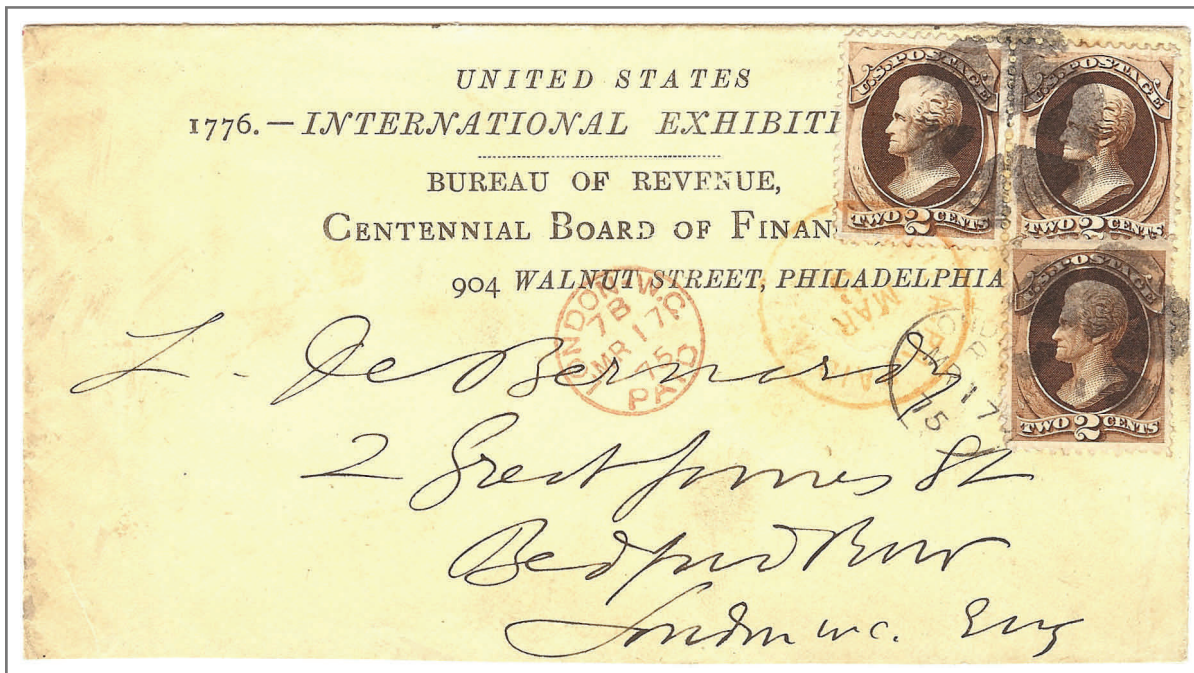 UNITED STATES
1776.—INTERNATIONAL EXHIBITI
BUREAU OF REVENUE,
CENTENNIAL BOARD OF FINAN
904 WALNUT STREET, PHILADELPHIA
U.S. POSTAGE
TWO 2 CENTS
U.S. POSTAGE
TWO 2 CENTS
U.S. POSTAGE
TWO 2 CENTS
LONDON.W.C
7B
MR 17
75
PAID
MAR
LONDON
MR 17
75
L. De Bernardy
2 Great James St
Bedford Row
London W.C. Eng